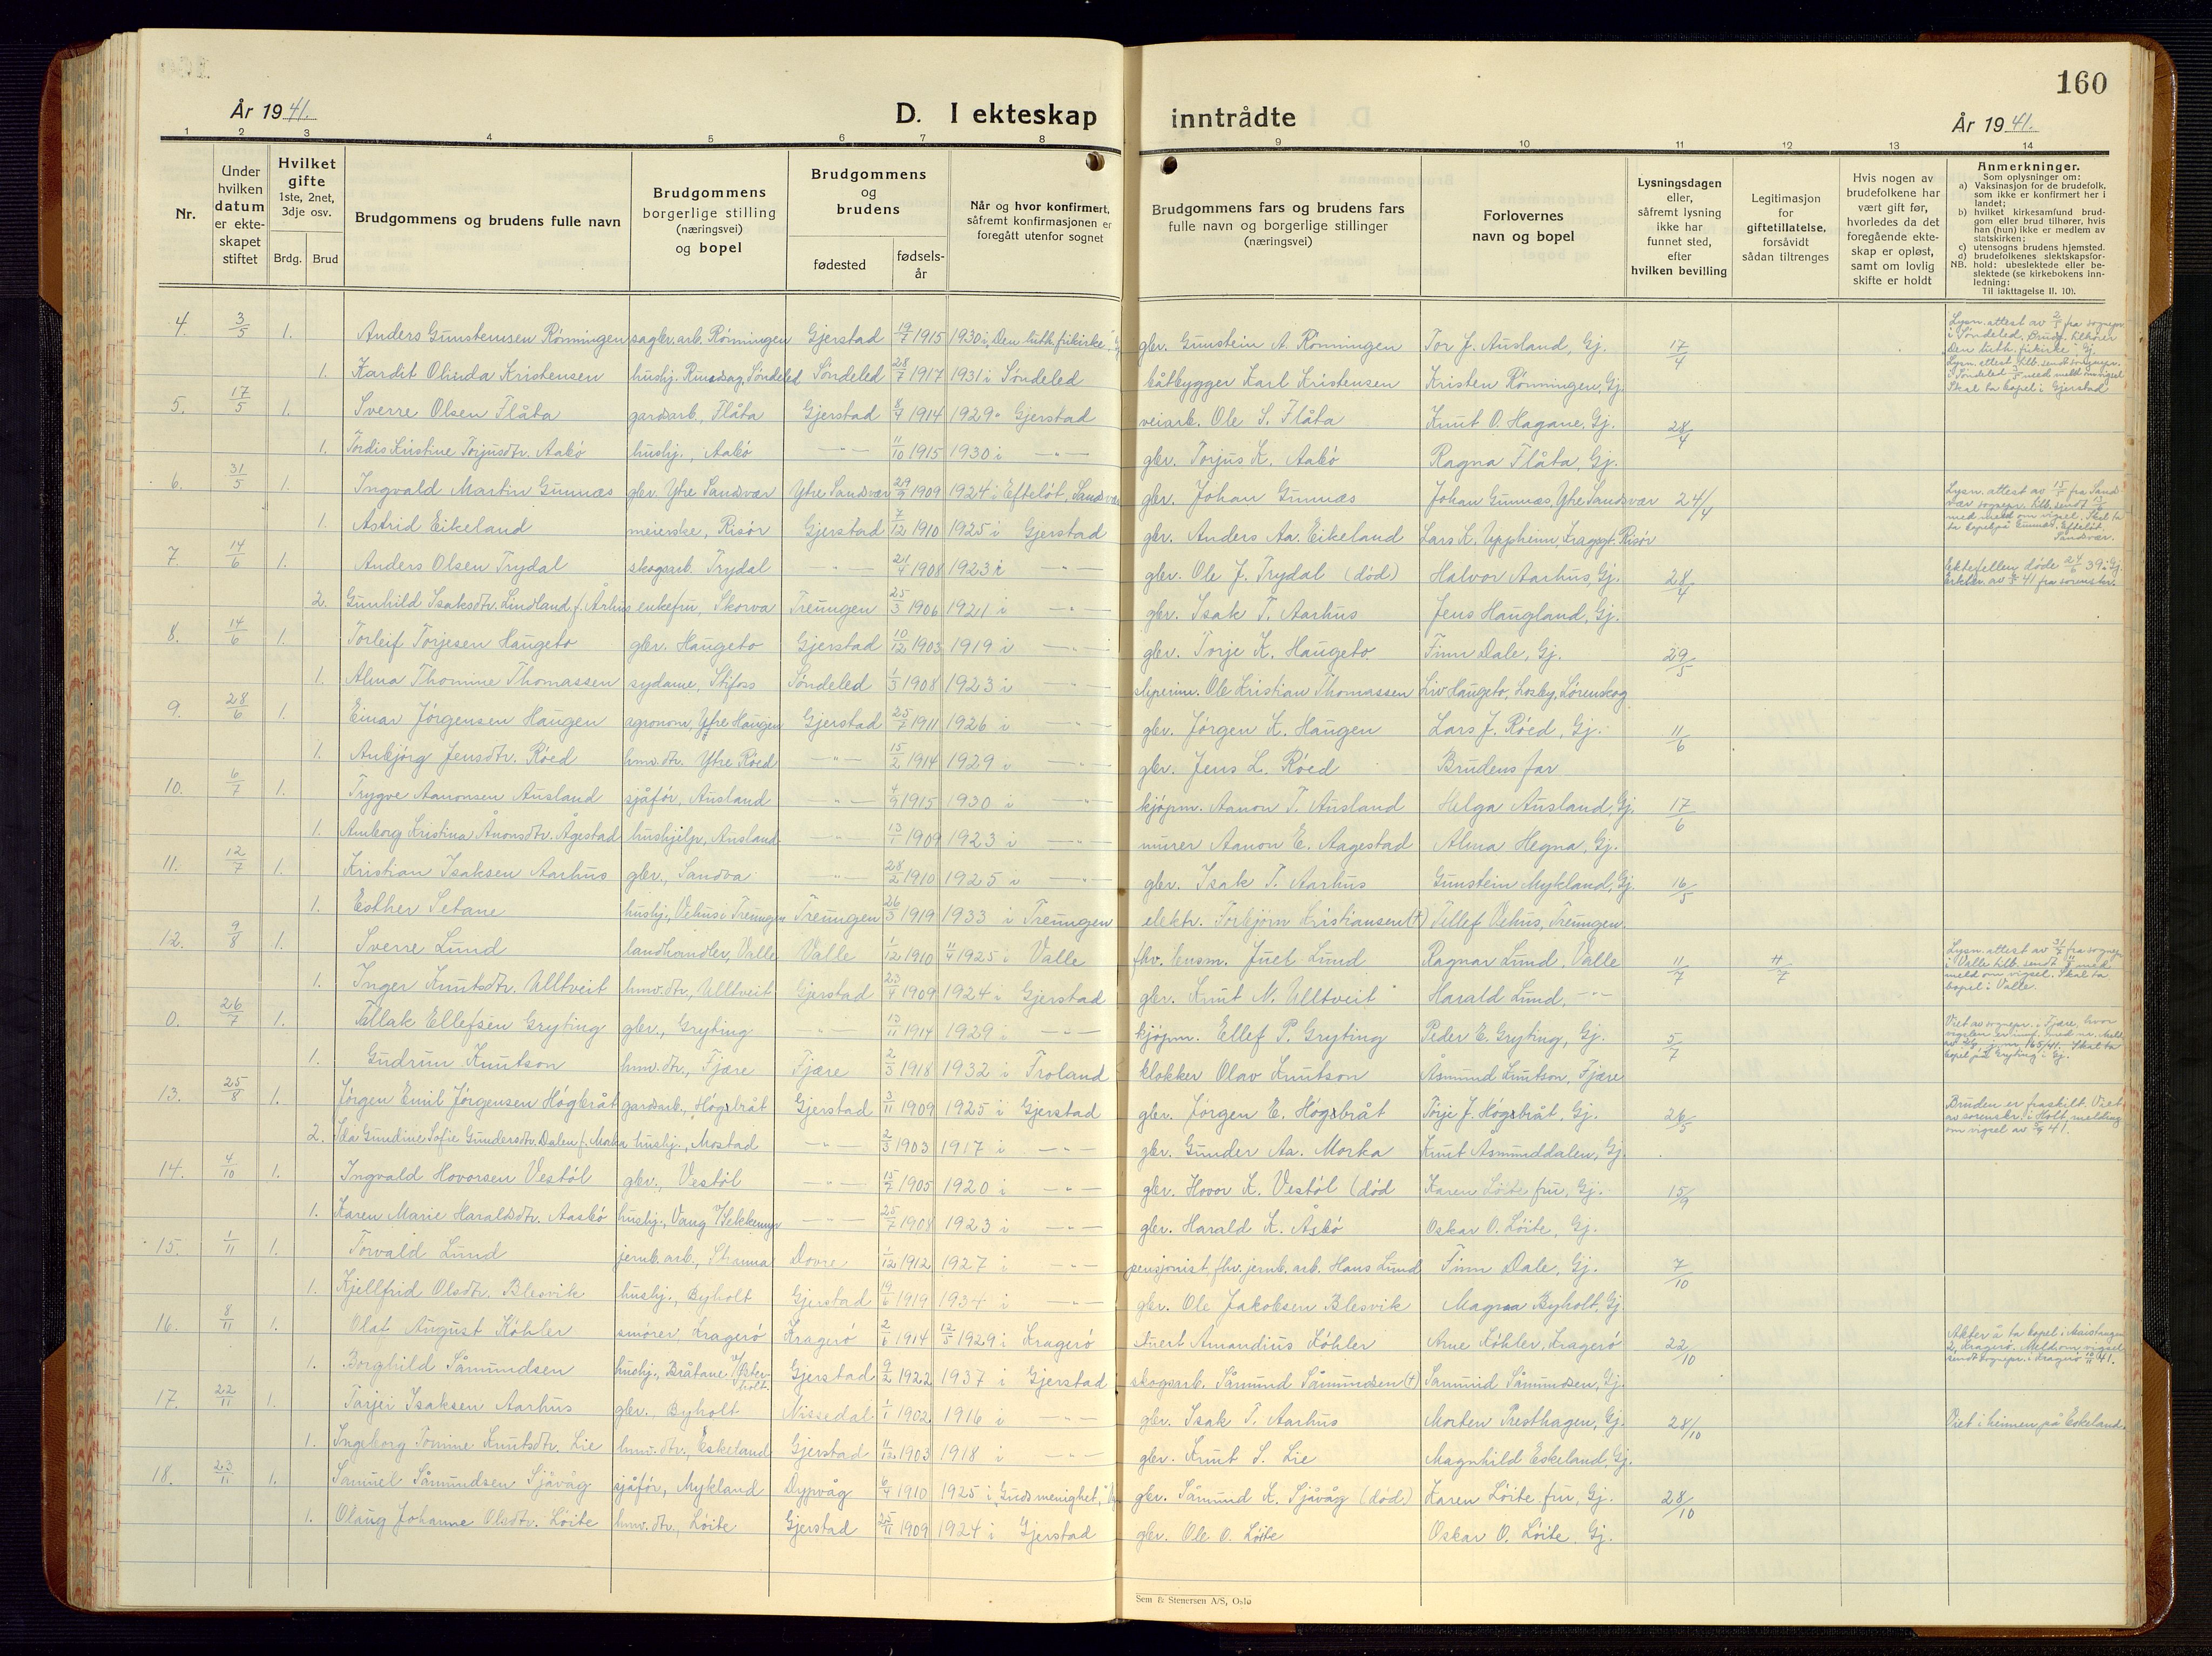 160
År 1941.
D. I ekteskap inntrådte
År 1941.
1 2 3 4 5 6 7 8 9 10 11 12 13 14
Nr.
Under hvilken datum er ekteskapet stiftet
Hvilket gifte 1ste, 2net, 3dje osv.
Brdg. Brud
Brudgommens og brudens fulle navn
Brudgommens borgerlige stilling (næringsvei) og bopel
Brudgommens og brudens
fødested
fødselsår
Når og hvor konfirmert, såfremt konfirmasjonen er foregått utenfor sognet
Brudgommens fars og brudens fars fulle navn og borgerlige stillinger (næringsvei)
Forlovernes navn og bopel
Lysningsdagen eller, såfremt lysning ikke har funnet sted, efter hvilken bevilling
Legitimasjon for giftetillatelse, forsåvidt sådan tiltrenges
Hvis nogen av brudefolkene har vært gift før, hvorledes da det foregående ekteskap er opløst, samt om lovlig skifte er holdt
Anmerkninger.
Som oplysninger om:
a) Vaksinasjon for de brudefolk, som ikke er konfirmert her i landet;
b) hvilket kirkesamfund brudgom eller brud tilhører, hvis han (hun) ikke er medlem av statskirken;
c) utensogns brudens hjemsted.
d) brudefolkenes slektskapsforhold: ubeslektede eller beslektede (se kirkebokens innledning:
NB.
Til iakttagelse II. 10).
4. 3/5 1. Anders Gunstensen Rönningen sagbr. arb. Rönningen Gjerstad 19/7 1915 1930 i "Den luth. frikirke" gbr. Gunstein A. Rönningen Tor J. Ausland, Gj. 17/4
1. Kardit Olinda Kristensen hushj. Søndeled Søndeled 28/7 1917 1931 i Søndeled båtbygger Karl Kristensen Kristen Rönningen, Gj.
Skal ta bopel i Gjerstad
5. 17/5 1. Sverre Olsen Flåta gardsarb., Flåta Gjerstad 8/7 1914 1929 Gjerstad veiarb. Ole S. Flåta Knut O. Hagane, Gj. 28/4
1. Tordis Kristine Torjusdtr. Aabö hushj., Aabö —"— 11/10 1915 1930 i —"— gbr. Torjus K. Aabö Ragna Flåta, Gj.
6. 31/5 1. Ingvald Martin Gunnæs gbr. Ytre Sandsvær Ytre Sandsvær 29/9 1909 1924 i Efteløt, Sandsvær gbr. Johan Gunnæs Johan Gunnæs, Ytre Sandsvær 24/4
1. Astrid Eikeland meierske, Risör Gjerstad 7/12 1910 1925 i Gjerstad gbr. Anders Aa. Eikeland Lars K. Uppheim, Kragsgt. Risör
7. 14/6 1. Anders Olsen Trydal skogsarb. Trydal —"— 21/4 1908 1923 i —"— gbr. Ole J. Trydal (död) Halvor Aarhus, Gj. 28/4
2. Gunhild Isaksdtr. Lindland f. Århus enkefru, Skorva Treungen 25/3 1906 1921 i —"— gbr. Isak T. Aarhus Jens Haugland, Gj.
8. 14/6 1. Torleif Torjesen Haugeto gbr. Haugeto Gjerstad 10/12 1903 1919 i —"— gbr. Torje K. Haugeto Finn Dale, Gj. 29/5
1. Alma Thomine Thomassen sydame, Stifoss Söndeled 1/3 1908 1923 i —"— Ole Kristian Thomassen Liv Haugeto, Losby, Lörenskog
9. 28/6 1. Einar Jörgensen Haugen agronom, Ytre Haugen Gjerstad 25/7 1911 1926 i —"— gbr. Jörgen K. Haugen Lars J. Röed, Gj. 11/6
1. Anbjörg Jensdtr. Röed hmv. dtr. Ytre Röed —"— 15/2 1914 1929 i —"— gbr. Jens L. Röed Brudens far
10. 6/7 1. Trygve Aanonsen Ausland sjåför, Ausland —"— 4/9 1915 1930 i —"— kjöpm. Aanon T. Ausland Helga Ausland, Gj. 17/6
1. Amborg Kristina Ånonsdtr. Ågestad hushjelp, Ausland —"— 13/7 1909 1923 i —"— murer Aanon E. Aagestad Alma Hegna, Gj.
11. 12/7 1. Kristian Isaksen Aarhus gbr., Sandva —"— 28/2 1910 1925 i —"— gbr. Isak T. Aarhus Gunstein Mykland, Gj. 16/5
1. Esther Setane hushj., Vehus i Treungen Treungen 26/5 1919 1933 i Treungen elektr. Torbjörn Kristiansen (†) Tellef Vehus, Treungen
12. 9/8 1. Sverre Lund landhandler, Valle Valle 1/12 1910 11/4 1925 i Valle fhv. lensm. Juel Lund Ragnar Lund, Valle 11/7 11/7
1. Inger Knutsdtr. Ulltveit hmv. dtr., Ulltveit Gjerstad 23/4 1909 1924 i Gjerstad gbr. Knut N. Ulltveit Harald Lund, —"—
meld om vigsel. Skal ta bopel i Valle.
0. 26/7 1. Tallak Ellefsen Gryting gbr., Gryting —"— 13/11 1914 1929 i —"— kjöpm. Ellef P. Gryting Peder E. Gryting, Gj. 5/7
1. Gudrun Knutson hmv. dtr., Fjære Fjære 2/3 1918 1932 i Froland klokker Olav Knutson Åsmund Knutson, Fjære
13. 25/8 1. Jörgen Emil Jörgensen Högbråt gardsarb., Högsbråt Gjerstad 3/11 1909 1925 i Gjerstad gbr. Jörgen E. Högsbråt Törje J. Högsbråt, Gj. 26/5
Bruden er fraskilt. Viet av sorenskr. i Holt, melding om vigsel
2. Ida Gundine Sofie Gundersdtr. Dalen f. Morka hushj., Mostad —"— 2/3 1903 1917 i —"— gbr. Gunder Aa. Morka Knut Åsmunddalen, Gj.
14. 4/10 1. Ingvald Hovorsen Vestöl gbr., Vestöl —"— 15/7 1905 1920 i —"— gbr. Hovor K. Vestöl (död Karen Löite fru, Gj. 15/9
1. Karen Marie Haraldsdtr. Aasbö hushj., Vang —"— 25/7 1908 1923 i —"— gbr. Harald K. Åsbö Oskar O. Löite, Gj.
15. 1/11 1. Torvald Lund jernb. arb., Dovre 1/12 1912 1927 i —"— pensjonist, fhv. jernb. arb. Hans Lund Finn Dale, Gj. 7/10
1. Kjellfrid Olsdtr. Blesvik hushj., Byholt Gjerstad 19/6 1919 1934 i —"— gbr. Ole Jakobsen Blesvik Magna Byholt, Gj.
16. 8/11 1. Olaf August Köhler smörer Kragerö Kragerö 2/6 1914 12/5 1929 i Kragerö stuert Amandius Köhler Arne Köhler, Kragerö 22/10
1. Borghild Såmundsen hushj., Bråtane v/ Østerholt. Gjerstad 9/2 1922 1937 i Gjerstad skogsarb. Såmund Såmundsen (†) Samuid Såmundsen, Gj.
17. 22/11 1. Tarjei Isaksen Aarhus gbr., Byholt Nissedal 1/1 1902 1916 i —"— gbr. Isak T. Aarhus Morten Presthagen, Gj. 28/10 Viet i heimen på Eskeland.
1. Ingeborg Tomine Knutsdtr. Lie hmv. dtr., Eskeland Gjerstad 11/12 1903 1918 i —"— gbr. Knut S. Lie Magnhild Eskeland, Gj.
18. 23/11 1. Samuel Såmundsen Sjåvåg sjåför, Mykland Dypvåg 6/4 1910 1925 i "Guds menighet," gbr. Såmund K. Sjåvåg (död) Karen Löite fru, Gj. 28/10
1. Olaug Johanne Olsdtr. Löite hmv. dtr., Löite Gjerstad 25/11 1909 1924 i Gjerstad gbr. Ole O. Löite Oskar O. Löite, Gj.
Sem & Stenersen A/S, Oslo